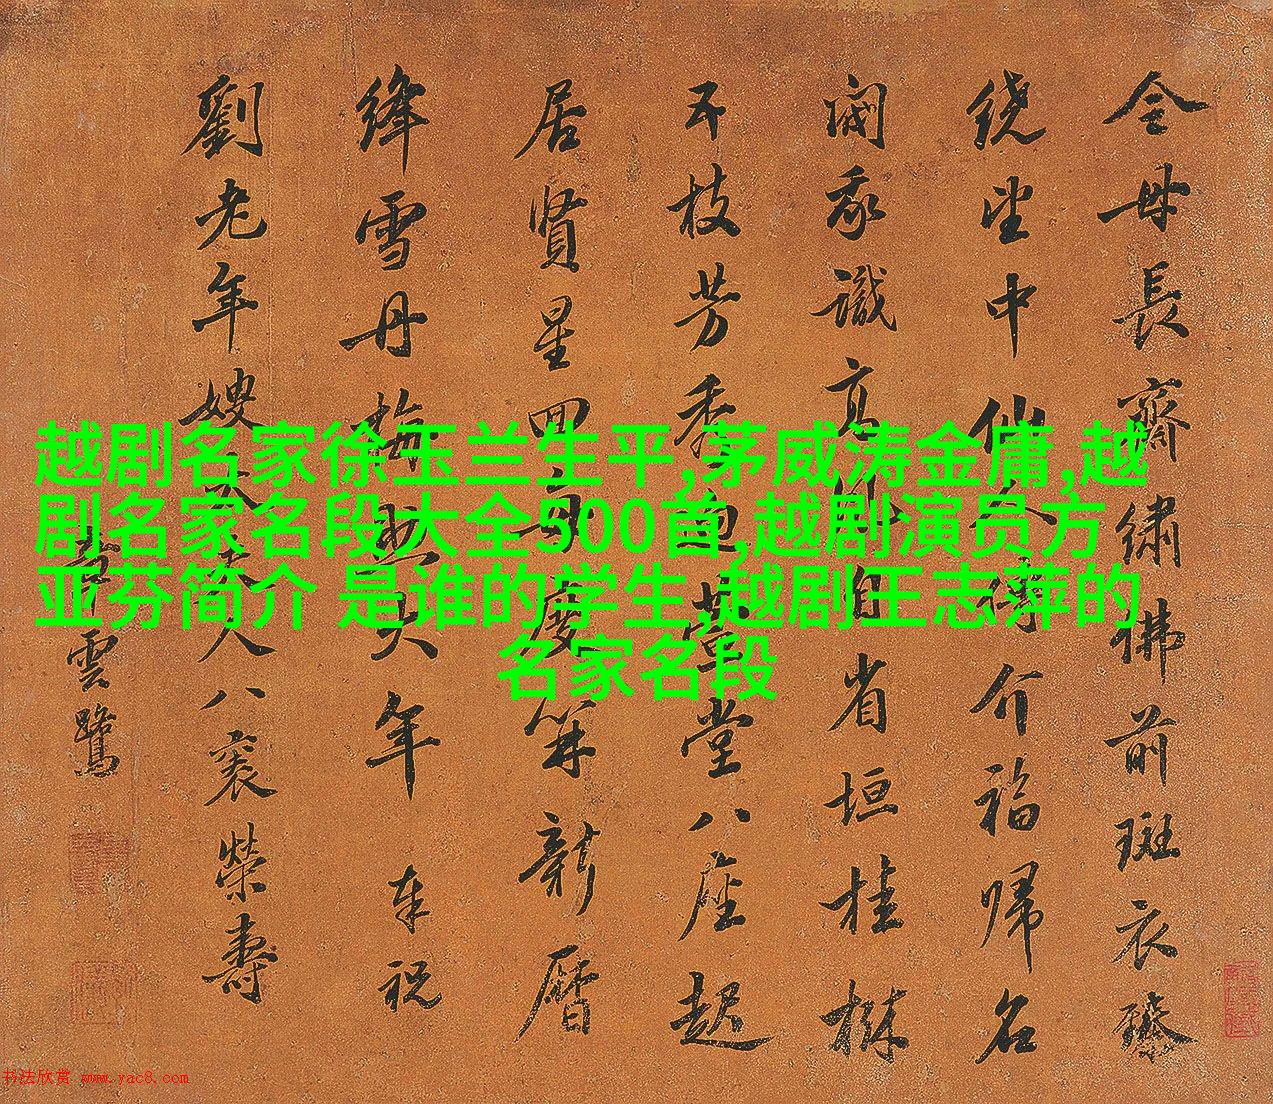 越剧名家徐玉兰生平,茅威涛金庸,越
剧名家名段大全500首,越剧演员方
亚芬简介 是谁的学生,越剧王志萍的
名家名段
金母長齊繡佛前斑衣
繞坐中仙人傳介福歸名
我識高自省垣桂林
枝芳秀萱堂八座起
居賢星四度新曆
絳雪丹梅大年奉祝
劉老年嫂太夫人八袠榮壽
雲鷺
书法欣赏 www.yac8.com